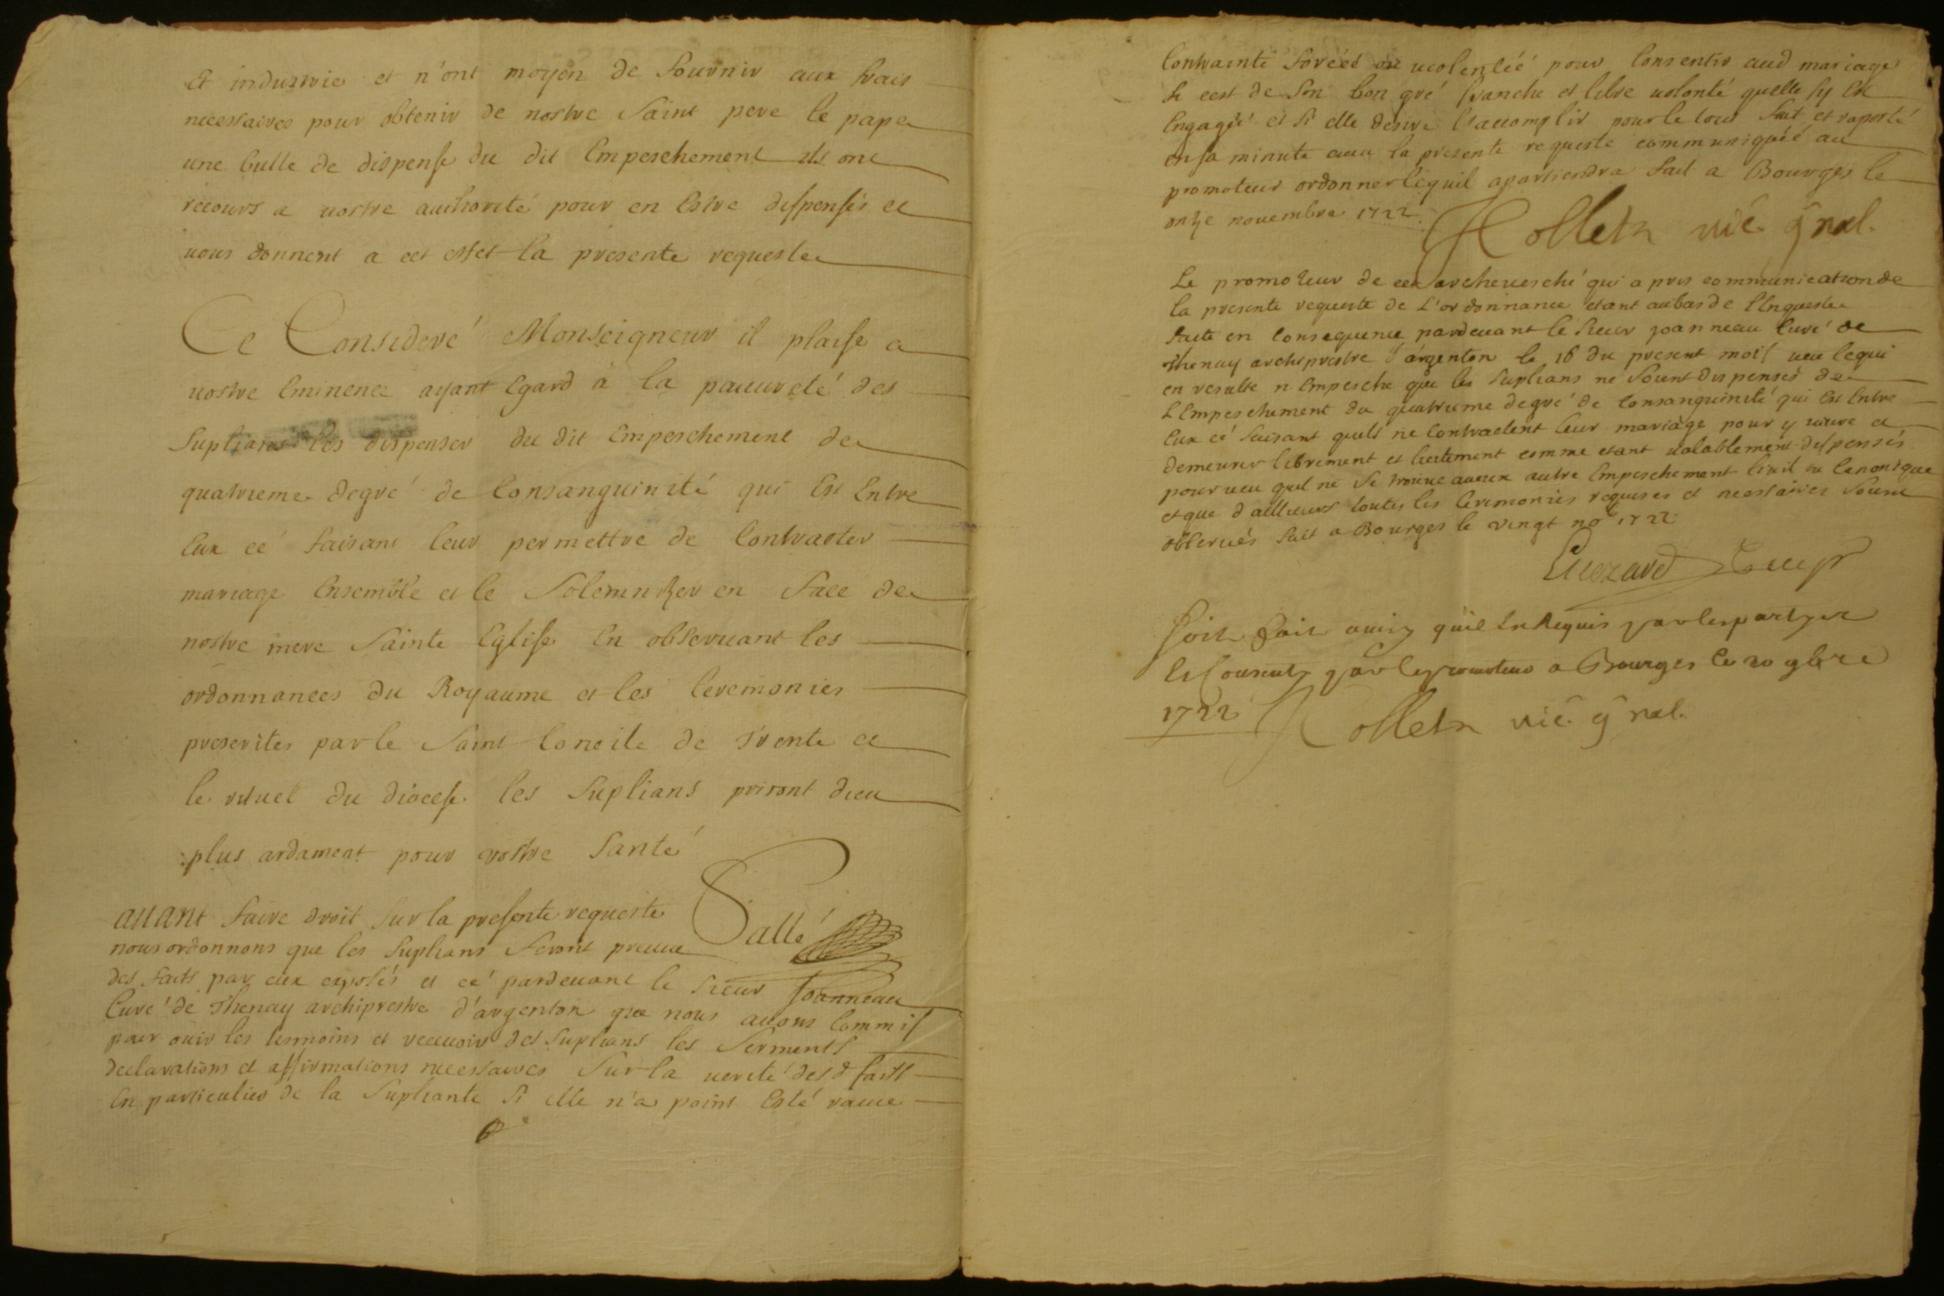 Et industrie et n'ont moyen de fournir aux frais
necessaires pour obtenir de nostre Saint pere le pape
une bulle de dispense du dit Empeschement ils ont
recours a vostre authorité pour en Estre dispensés et
vous donnent a cet effet la presente requeste
Ce Consideré Monseigneur il plaise a
vostre Eminence ayant Egard à la pauureté des
Suplians les dispenser du dit Empeschement de
quatrieme degré de Consanguinité qui Est Entre
Eux cé faisant leur permettre de Contracter
mariage Ensemble et le Solemnizer en face de
nostre mere Sainte Eglise En observant les
ordonnances du Royaume et les Ceremonies
prescrites par le Saint Concile de Trente et
le rituel du diocese les Suplians priront dieu
plus ardament pour vostre Santé
auant faire droit sur la presente requeste
Sallé
nous ordonnons que les Suplians feront preuue
des faits par eux exposés et cé pardeuant le sieur Joanneau
Curé de Thenay archiprestre d'argenton que nous auons Commis
pour ouir les tesmoins et receuoir des Suplians les Serments
declarations et affirmations necessaires Sur la uerité desd faits
En particulier de la Supliante Si elle n'a point Esté rauie
Contrainte forcéé ou uiolentéé pour Consentir aud mariage
Si cest de Son bon gré franche et libre uolonté quelle sy Est
Engagéé et Si elle desire l'accomplir pour le tout fait et raporté
en sa minute auec la presente requeste communiquéé au
promoteur ordonner cequil apartiendra fait a Bourges le
onze novembre 1722
Collet vic. gnal.
Le promoteur de cet archeuesché qui a pris communication de
la presente requeste de L'ordonnance etant aubas de l'Enqueste
faite en Consequence pardeuant le Sieur joanneau Curé de
Thenay archiprestre d'argenton le 16 du present mois ueu cequi
en resulte n Empesche que les Suplians ne Soient dispensés de
L'Empeschement du quatrieme degré de Consanguinité qui Est Entre
Eux cé faisant quils ne Contractent leur mariage pour y uiure et
demeurer librement et licitement comme etant ualablement dispensés
pourueu quil ne Se trouue aucun autre Empeschement Ciuil ou Canonique
et que d'ailleurs toutes les Ceremonies requises et necessaires Soient
obseruées fait a Bourges le vingt nore 1722
Soit fait ainsy quil Est Requis par les partyes
Et Consenty par le promoteur a Bourges le 20 9bre
1722 Collet vic. gnal.